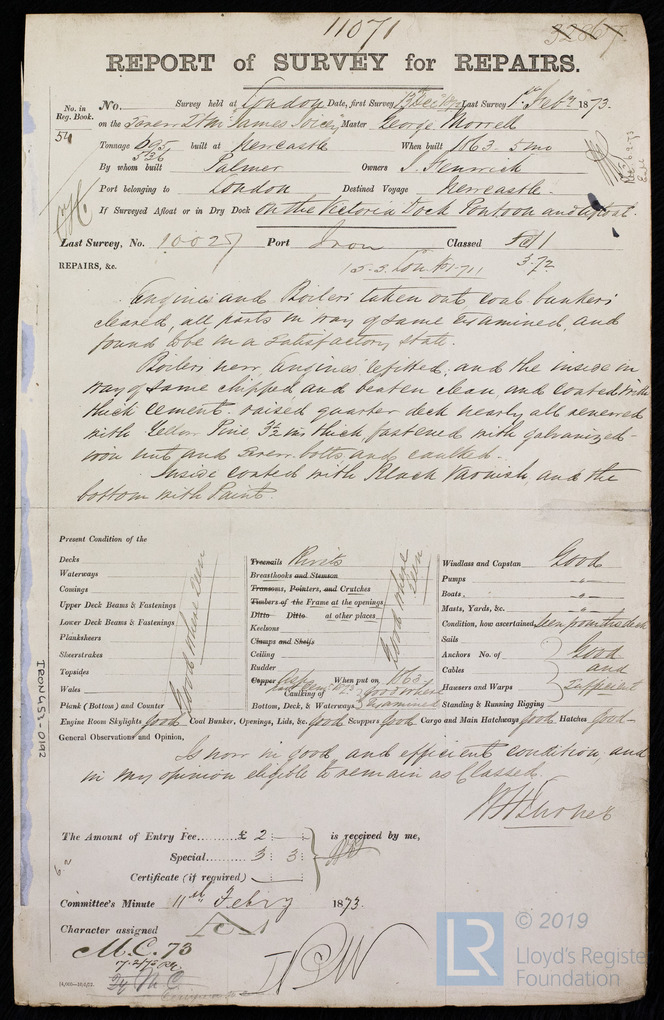 11071
REPORT of SURVEY for REPAIRS.
No. in Reg. Book. No. Survey held at London Date, first Survey 13th Decr 1872 Last Survey 1st Feby 1873.
54 on the James Joicey Master George Morrell
Tonnage 695 built at Newcastle When built 1863. 5 mo
536
By whom built Palmer Owners J. Fenwick
Port belonging to London Destined Voyage Newcastle.
If Surveyed Afloat or in Dry Dock on the Victoria Dock Pontoon and afloat.
Last Survey, No. 10027 Port Iron Classed A 1
3.72
REPAIRS, &c.
Engines and Boilers taken out coal bunkers
cleared, all parts in way of same examined and
found to be in a satisfactory state.
Boilers new, Engines refitted, and the inside in
way of same chipped and beaten clean and coated with
thick cement. raised quarter deck nearly all renewed
with Yellow Pine 3½ ins thick fastened with galvanized
iron nut and screw bolts and caulked.
Inside coated with Black Varnish and the
bottom with Paint.
Present Condition of the
Decks
Waterways
Comings
Upper Deck Beams & Fastenings
Lower Deck Beams & Fastenings
Planksheers
Sheerstrakes
Topsides
Wales
Plank (Bottom) and Counter
Good where seen
Treenails Rivets
Breasthooks and Stemson
Transoms, Pointers, and Crutches
Timbers of the Frame at the openings
Ditto Ditto at other places
Keelsons
Clamps and Shelfs
Ceiling
Rudder
Copper When put on 1863
Caulking of
Bottom, Deck, & Waterways
Good where seen
good when examined
Windlass and Capstan Good
Pumps -"-
Boats -"-
Masts, Yards, &c. -"-
Condition, how ascertained seen from the deck
Sails
Anchors No. of Good
Cables and
Hawsers and Warps sufficient
Standing & Running Rigging
Engine Room Skylights good Coal Bunker, Openings, Lids, &c. good Scuppers good Cargo and Main Hatchways good Hatches good
General Observations and Opinion,
Is now in good and efficient condition, and
in my opinion eligible to remain as Classed.
The Amount of Entry Fee £ 2 : : is received by me,
Special 3 : 3 :
Certificate (if required)
Committee's Minute 11th Feby 1873.
Character assigned A 1
M.C. 73
IRON452-0192
LR
© 2019
Lloyd's Register
Foundation